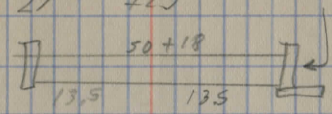 50 + 18
13,5 135